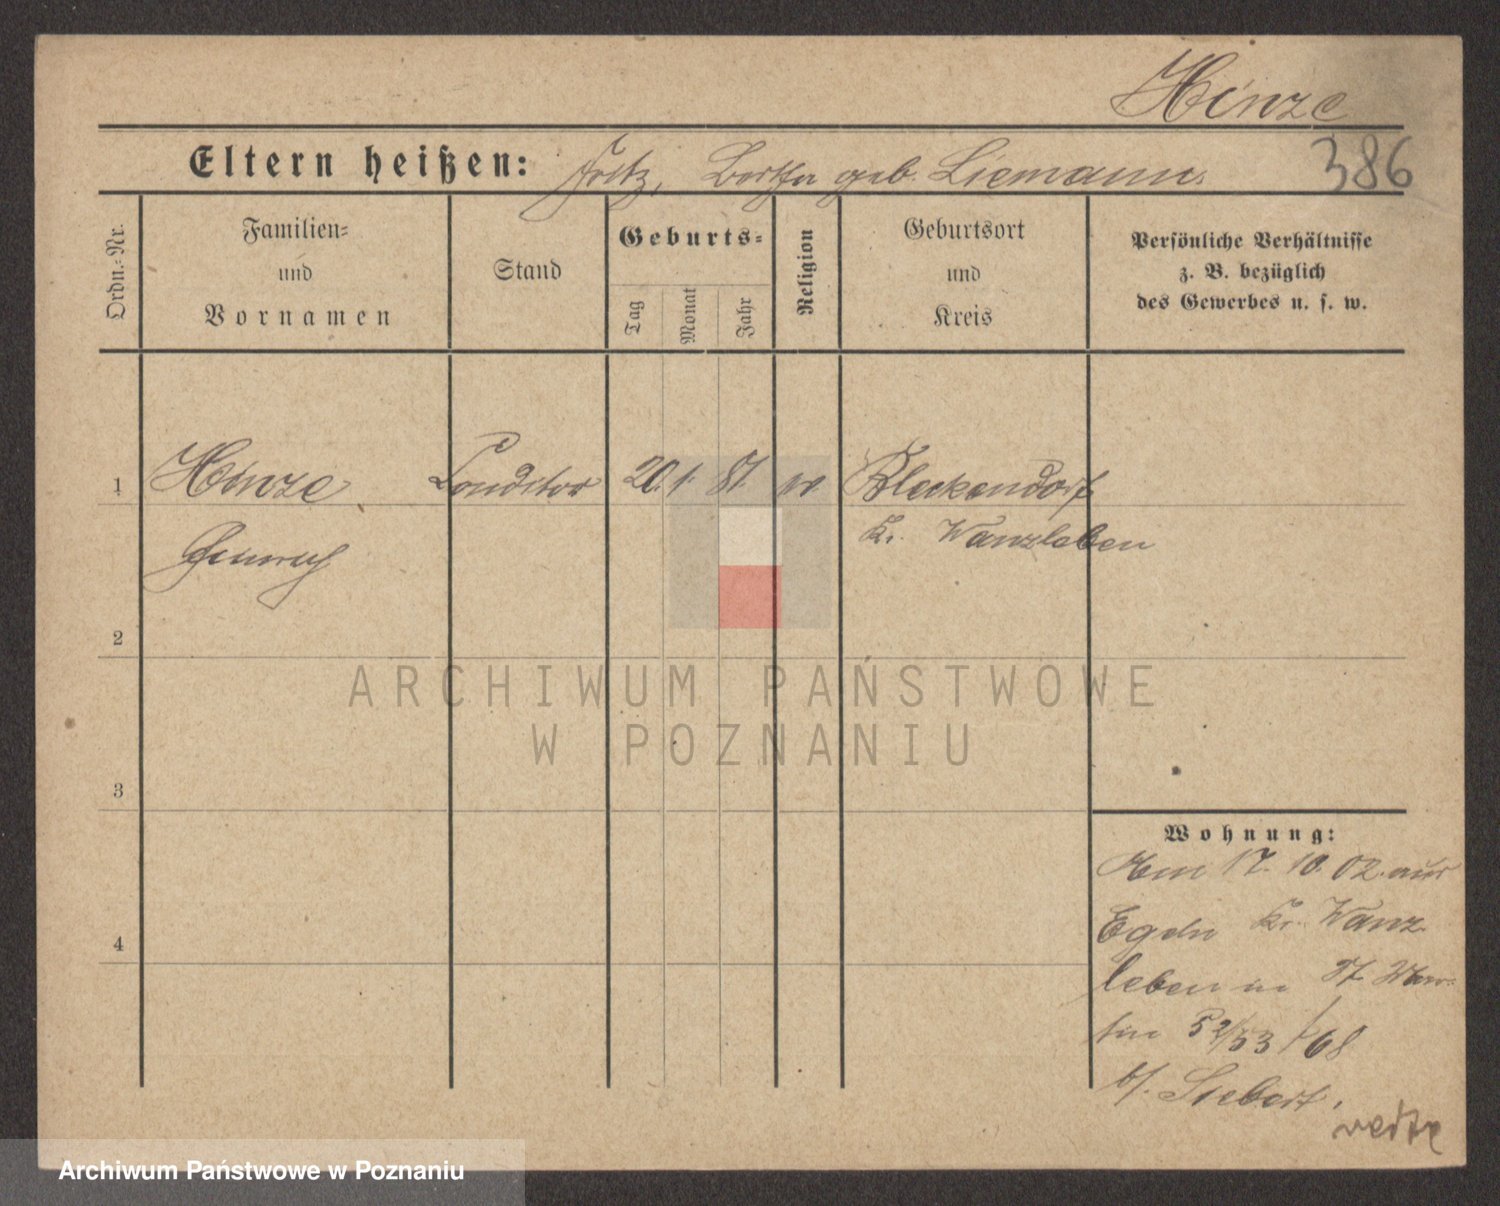 Hinze
Eltern heißen: Fritz, Bertha geb. Liemann.
386
Ordn.-Nr.
Familien-
und
Vornamen
Stand
Geburts-
Tag
Monat
Jahr
Religion
Geburtsort
und
Kreis
Persönliche Verhältnisse
z. B. bezüglich
des Gewerbes u. s. w.
1
Hinze Conditor 20. 1. 87. Bleckendorf
Heinrich Kr. Wanzleben
2
ARCHIWUM PAŃSTWOWE
W POZNANIU
3
4
Wohnung:
17. 10. 02. aus
Egeln Kr. Wanz
leben in St Mar-
tin 52/53 / 68
b/. Siebert.
Archiwum Państwowe w Poznaniu